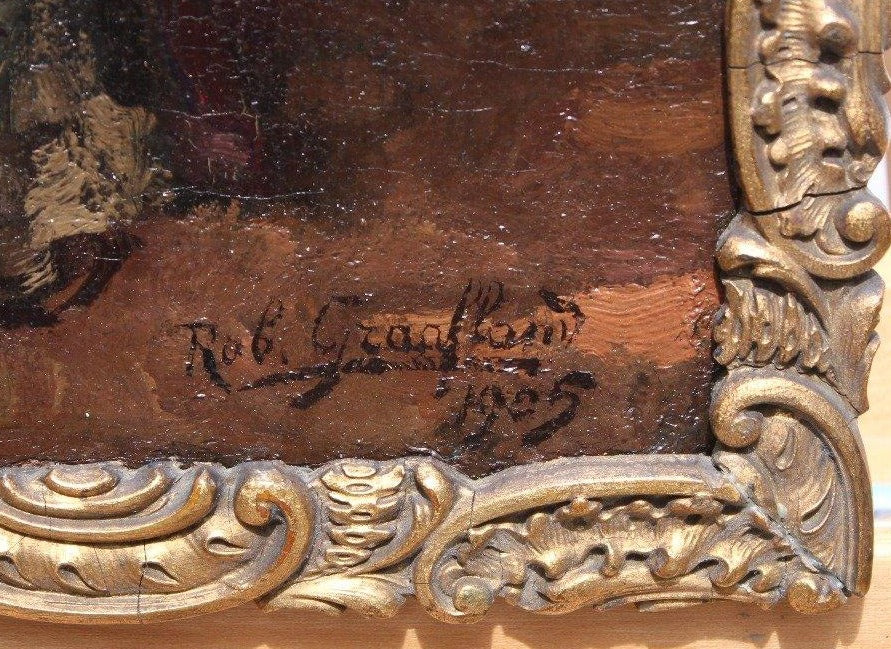 Rob. Graafland
1905